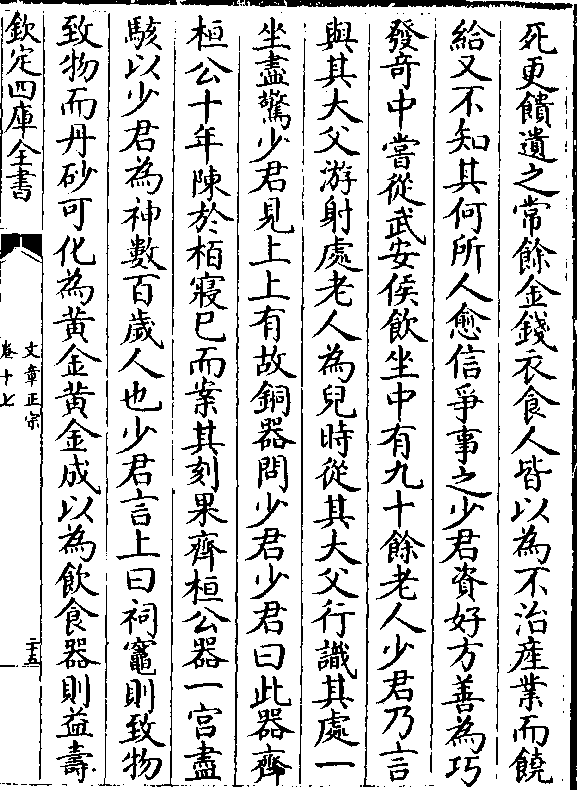 死更饋遺之常餘金錢衣食人皆以為不治産業而饒
給又不知其何所人愈信爭事之少君資好方善為巧
發奇中嘗從武安侯飲坐中有九十餘老人少君乃言
與其大父游射處老人為兒時從其大父行識其處一
坐盡驚少君見上上有故銅器問少君少君曰此器齊
桓公十年陳於栢寢已而案其刻果齊桓公器一宮盡
駭以少君為神數百歲人也少君言上曰祠竈則致物
致物而丹砂可化為黃金黃金成以為飲食器則益壽
欽定四庫全書
文章正宗
卷十七
二十五